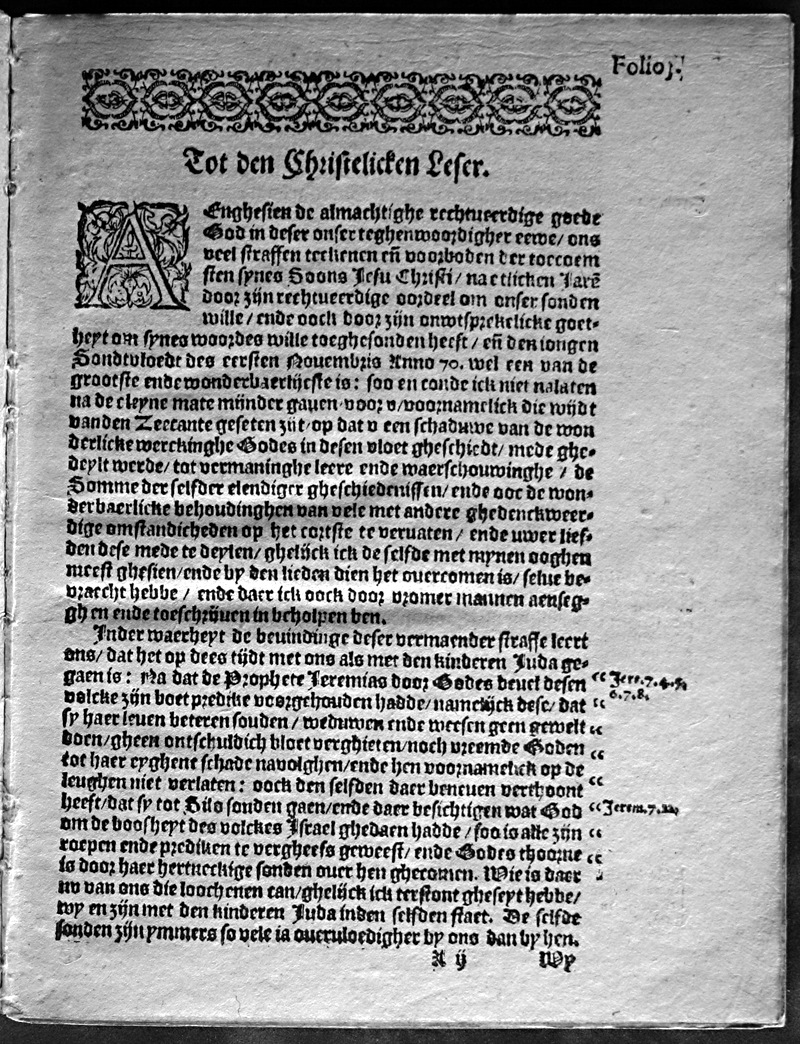 Folio j.
Tot den Christelicken Leser.
AEnghesien de almachtighe rechtueerdige goede
God in deser onser teghenwoordigher eewe / ons
veel straffen teekenen eñ voorboden der toecoem
sten synes Soons Jesu Christi / na etlicken Jarẽ
door zijn rechtueerdige oordeel om onser sonden
wille / ende oock door zijn onwtsprekelicke goet-
heyt om synes woordes wille toeghesonden heeft / eñ den iongen
Sondtvloedt des eersten Nouembris Anno 70. wel een van de
grootste ende wonderbaerlijcste is: soo en conde ick niet nalaten
na de cleyne mate mijnder gauen voor v / voornamelick die wijdt
vanden Zeecante geseten zijt / op dat v een schaduwe van de won
derlicke werckinghe Godes in desen vloet gheschiedt / mede ghe-
deylt werde / tot vermaninghe leere ende waerschouwinghe / de
Somme der selfder elendiger gheschiedenissen / ende ooc de won-
derbaerlicke behoudinghen van vele met andere ghedenckweer-
dige omstandicheden op het cortste te veruaten / ende uwer lief-
den dese mede te deylen / ghelijck ick de selfde met mynen ooghen
meest ghesien / ende by den lieden dien het ouercomen is / selue be-
vraecht hebbe / ende daer ick oock door vromer mannen aenseg-
ghen ende toeschrijuen in beholpen ben.
Inder waerheyt de beuindinge deser vermaender straffe leert
ons / dat het op dees tijdt met ons als met den kinderen Juda ge-
gaen is: Na dat de Prophete Jeremias door Godes beuel desen “ Jere. 7. 4. 5.
volcke zijn boet predike voorgehouden hadde / namelijck dese / dat “ 6. 7. 8.
sy haer leuen beteren souden / weduwen ende weesen geen gewelt “
doen / gheen ontschuldich bloet verghieten / noch vreemde Goden “
tot haer eyghene schade navolghen / ende hen voornamelick op de
leughen niet verlaten: oock den selfden daer beneuen verthoont “
heeft / dat sy tot Silo souden gaen / ende daer besichtigen wat God “ Jerem. 7. 12.
om de boosheyt des volckes Israel ghedaen hadde / soo is alle zijn “
roepen ende prediken te vergheefs geweest / ende Godes thoorne “
is door haer hertneckige sonden ouer hen ghecomen. Wie is daer
nv van ons die loochenen can / ghelijck ick terstont gheseyt hebbe /
wy en zijn met den kinderen Juda inden selfden staet. De selfde
sonden zijn ymmers so vele ia oueruloedigher by ons dan by hen.
A ij Wy